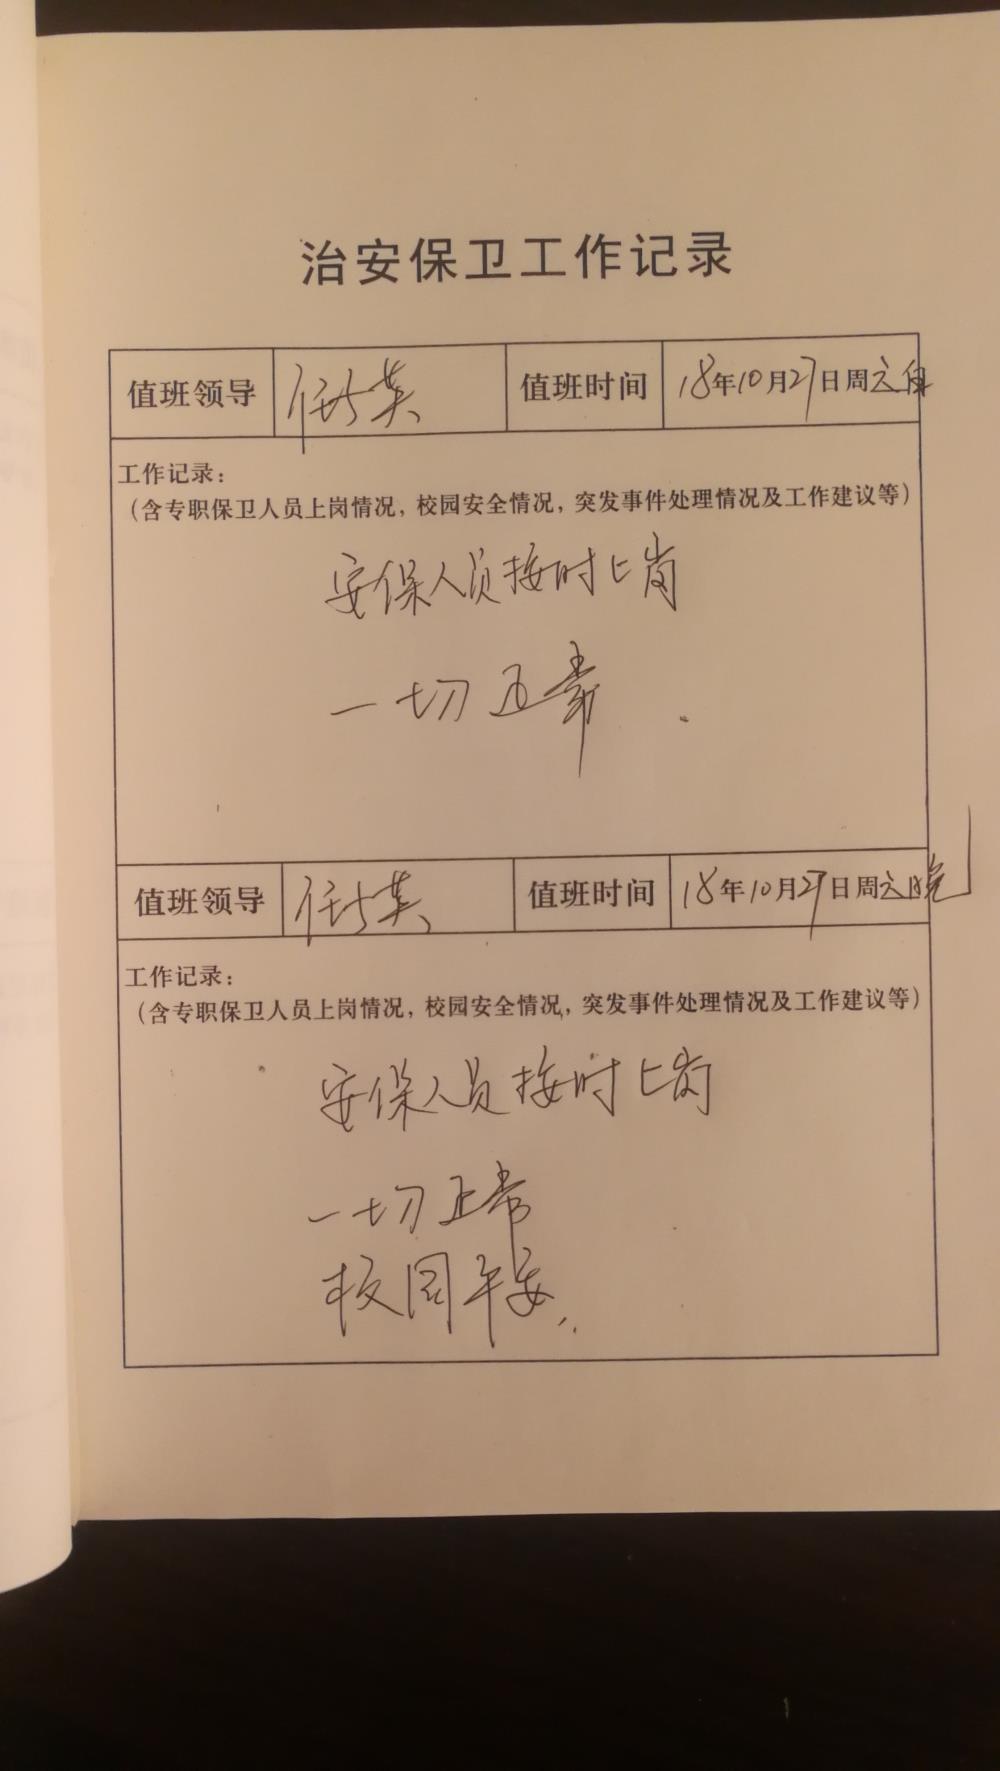 治安保卫工作记录
值班领导 任巧英 值班时间 18年10月27日周六白
工作记录：
（含专职保卫人员上岗情况，校园安全情况，突发事件处理情况及工作建议等）
安保人员按时上岗
一切正常.
值班领导 任巧英 值班时间 18年10月27日周六晚
工作记录：
（含专职保卫人员上岗情况，校园安全情况，突发事件处理情况及工作建议等）
安保人员按时上岗
一切正常
校园平安.